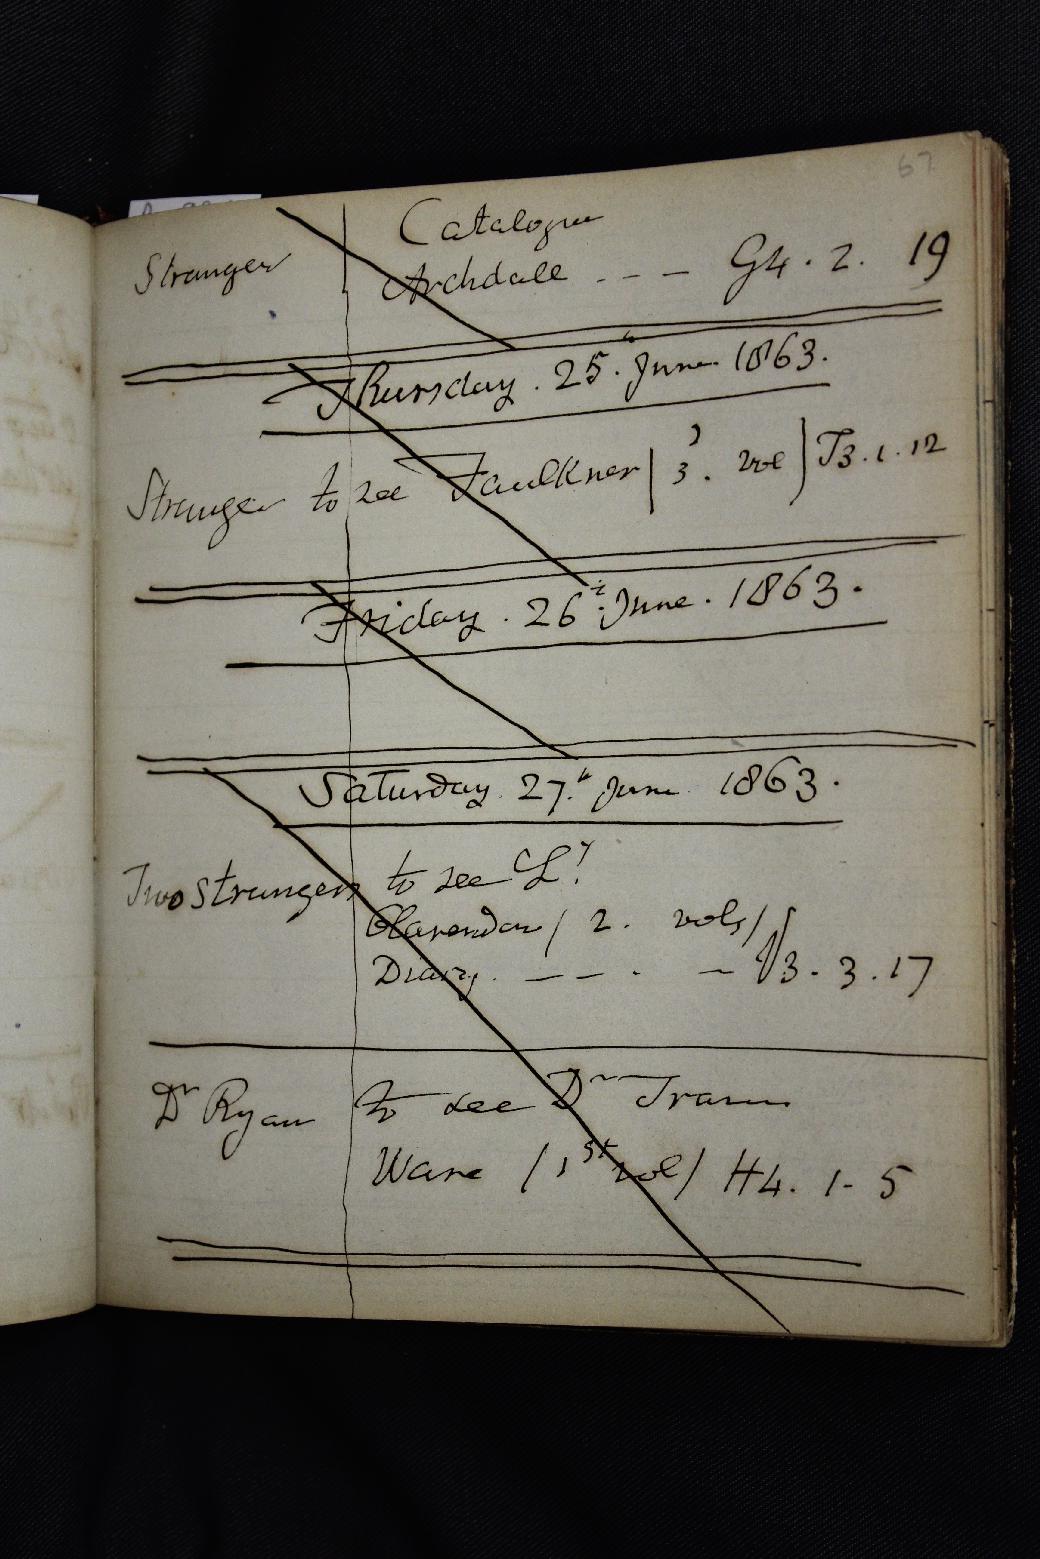 67
Catalogue
Stranger Archdale - - - G4. 2. 19
Thursday. 25. June 1863.
Stranger to see Faulkner / 3. vol) T3. 1. 12
Friday. 26. June. 1863.
Saturday 27. June 1863.
Two Strangers to see Ly
Clarendon / 2. vols /
Diary. - - . - 3. 3. 17
Dr Ryan to see Dr Travers
Ware / 1st vol / H4. 1- 5